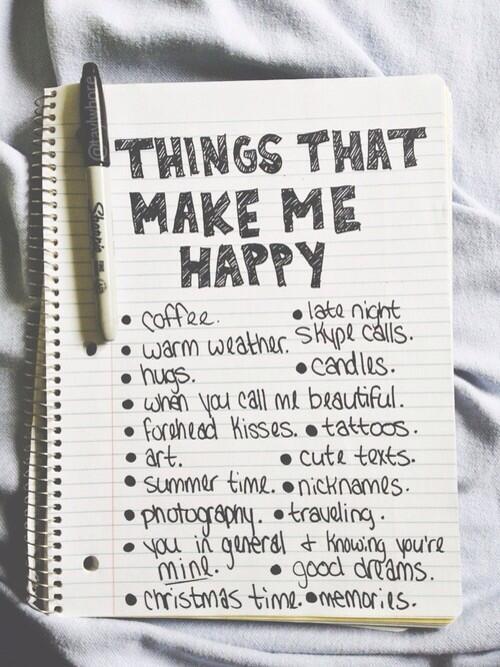 THINGS THAT
MAKE ME
HAPPY
• coffee.
• late night
skype calls.
• warm weather.
• hugs.
• candles.
• when you call me beautiful.
• forehead kisses. • tattoos.
• art. • cute texts.
• summer time. • nicknames.
• photography. • traveling.
• you in general + knowing you're
mine. • good dreams.
• christmas time. • memories.
Sharpie